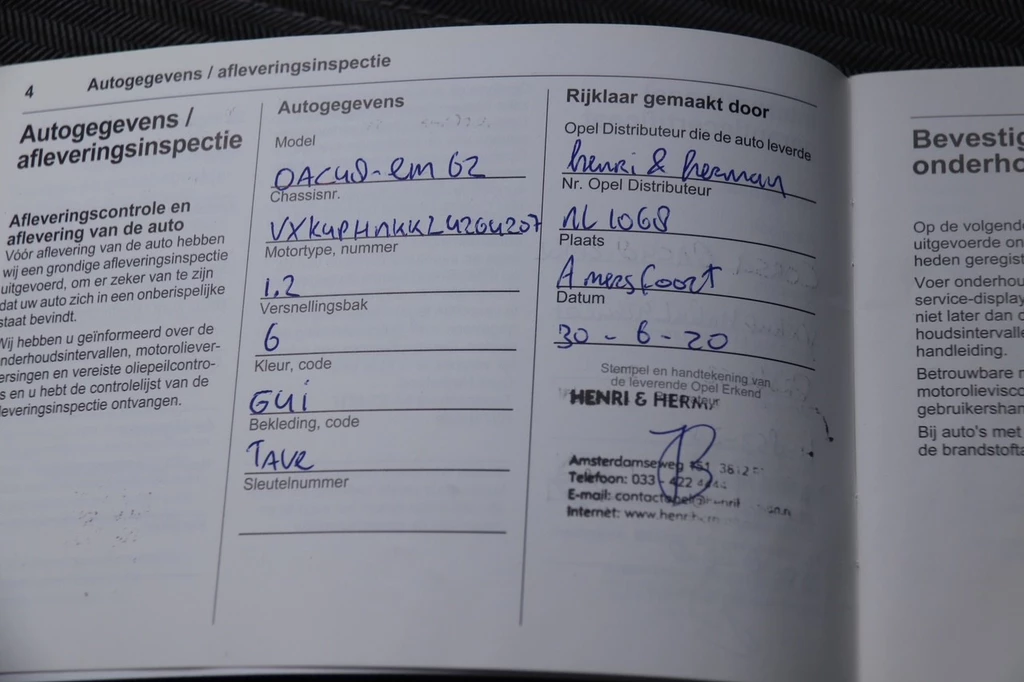 4
Autogegevens / afleveringsinspectie
Autogegevens /
afleveringsinspectie
Afleveringscontrole en
aflevering van de auto
Vóór aflevering van de auto hebben
wij een grondige afleveringsinspectie
uitgevoerd, om er zeker van te zijn
dat uw auto zich in een onberispelijke
staat bevindt.
Wij hebben u geïnformeerd over de
nderhoudsintervallen, motoroliever-
ersingen en vereiste oliepeilcontro-
s en u hebt de controlelijst van de
leveringsinspectie ontvangen.
Autogegevens
Model
0ACU8-EM62
Chassisnr.
VXKUPHNKKL4264207
Motortype, nummer
1.2
Versnellingsbak
6
Kleur, code
GUI
Bekleding, code
TAVR
Sleutelnummer
Rijklaar gemaakt door
Opel Distributeur die de auto leverde
henri & herman
Nr. Opel Distributeur
NL 1068
Plaats
Amersfoort
Datum
30 - 6 - 20
Stempel en handtekening van
de leverende Opel Erkend
HENRI & HERM
Amsterdamseweg
Telefoon: 033 422
E-mail:
Internet:
Bevestig
onderho
Op de volgende
uitgevoerde on
heden geregist
Voer onderhou
service-display
niet later dan d
houdsintervalle
handleiding.
Betrouwbare m
motorolievisco
gebruikershan
Bij auto's met
de brandstofta